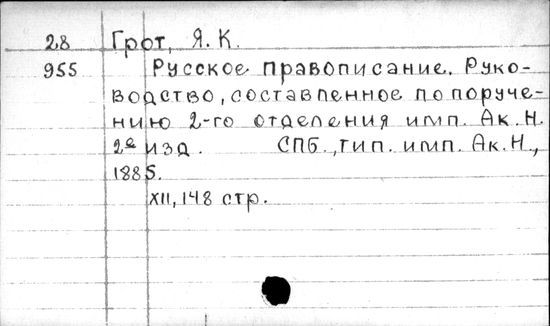 28 Грот, Я. К.
955 Русское правописание. Руко-
водство, составленное по поруче-
нию 2-го отделения имп. Ак. Н.
2е изд. СПб., тип. имп. Ак. Н.,
1885.
XII, 148 стр.